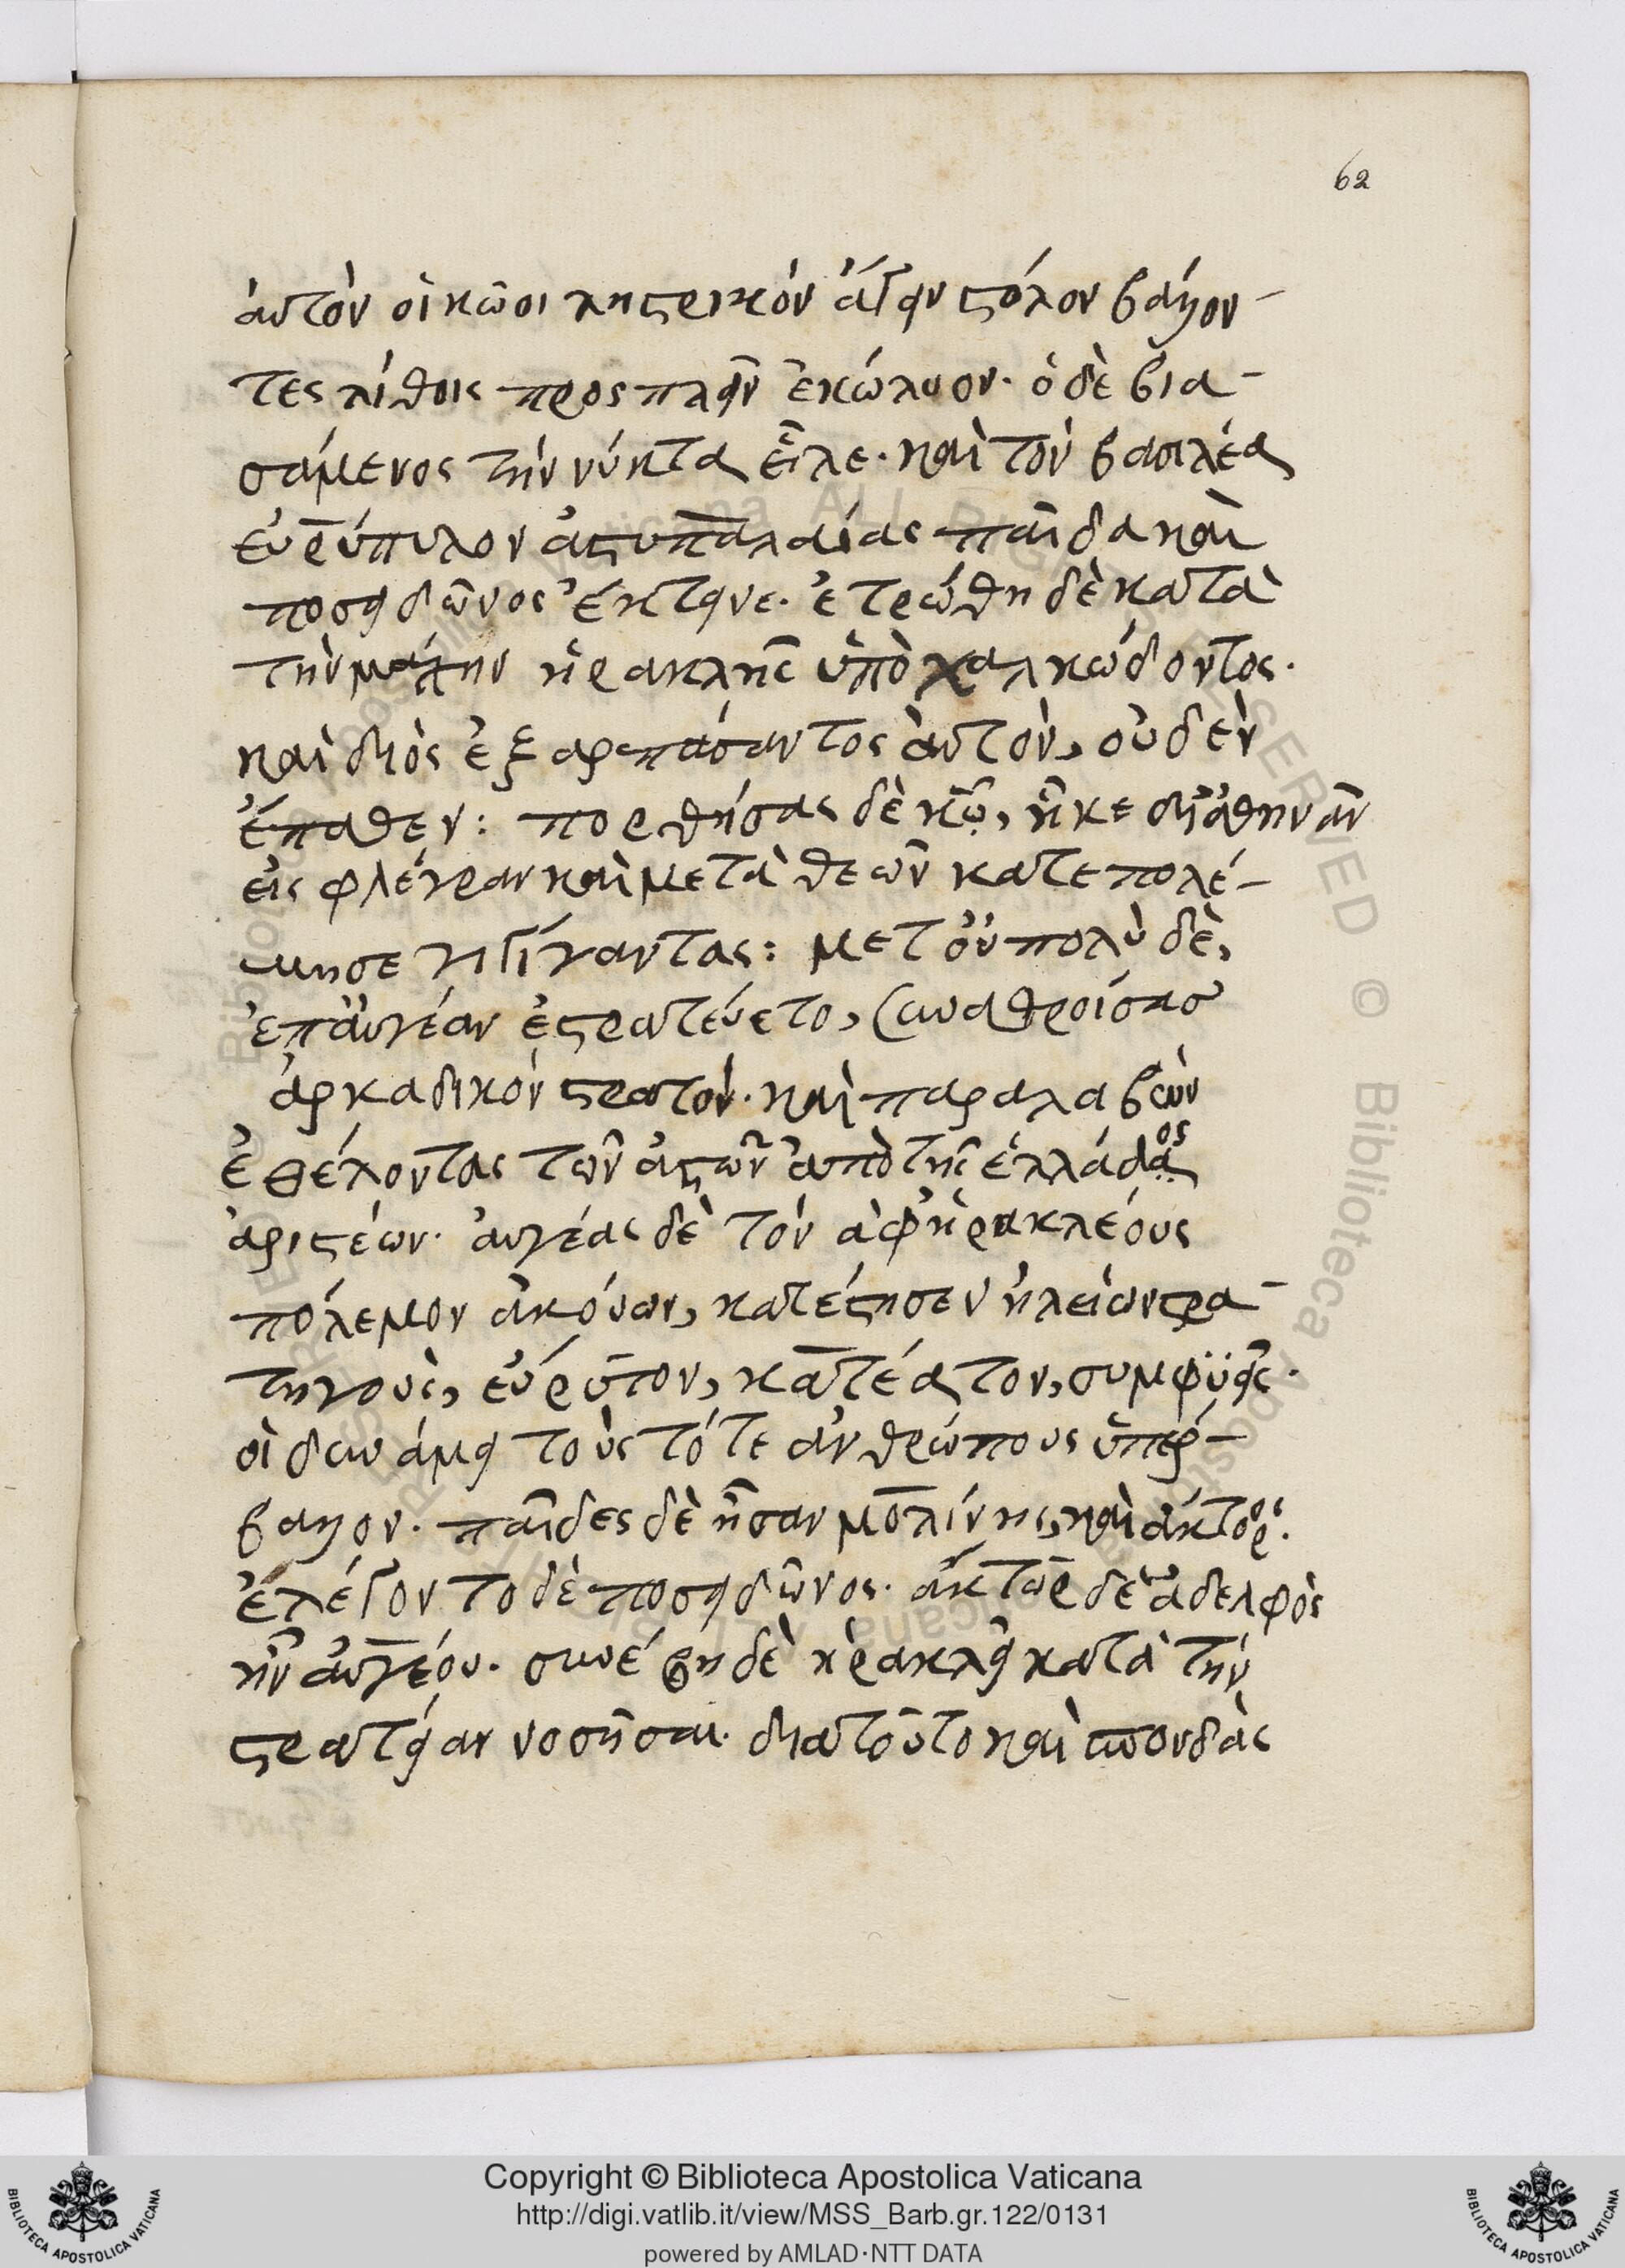 62
αὐτὸν οἱ κῶοι ληστρικὸν ἄγειν στόλον βάλλον-
τες λίθοις προσπλεῖν ἐκώλυον· ὁ δὲ βια-
σάμενος τὴν νύκτα εἷλε· καὶ τὸν βασιλέα
εὐρύπυλον ἀστυπαλαίας παῖδα καὶ
ποσειδῶνος ἔκτεινε· ἐτρώθη δὲ κατὰ
τὴν μάχην ἡρακλῆς ὑπὸ χαλκώδοντος·
καὶ διὸς ἐξαρπάσαντος αὐτὸν, οὐδὲν
ἔπαθεν: πορθήσας δὲ κῶ, ἧκε δι ἀθηνᾶν
εἰς φλέγραν καὶ μετὰ θεῶν κατεπολέ-
μησε γιγίγαντας: μετ οὐ πολὺ δὲ,
ἐπ αὐγέαν ἐστρατεύετο, συναθροίσας
ἀρκαδικὸν στρατόν· καὶ παραλαβὼν
ἐθέλοντας τῶν ἀστῶν ἀπὸ τῆς ἑλλάδος
ἀριστέων· αὐγέας δὲ τὸν ἀφ ἡρακλέους
πόλεμον ἀκούων, κατέστησεν ἠλείων στρα-
τηγοὺς, εὔρυτον, κατέατον, συμφϋεῖς·
οἳ δυνάμει τοὺς τότε ἀνθρώπους ὑπερ-
βαλλον· παῖδες δὲ ἦσαν μολίνης, καὶ ἄκτορος·
ἐλέγοντο δὲ ποσειδῶνος· ἄκτωρ δὲ ἀδελφὸς
ἦν αὐγέου· συνέβη δὲ ἡρακλεῖ κατὰ τὴν
στρατείαν νοσῆσαι· διατοῦτο καὶ σπονδὰς
Copyright © Biblioteca Apostolica Vaticana
http://digi.vatlib.it/view/MSS_Barb.gr.122/0131
powered by AMLAD·NTT DATA
BIBLIOTECA APOSTOLICA VATICANA
BIBLIOTECA APOSTOLICA VATICANA